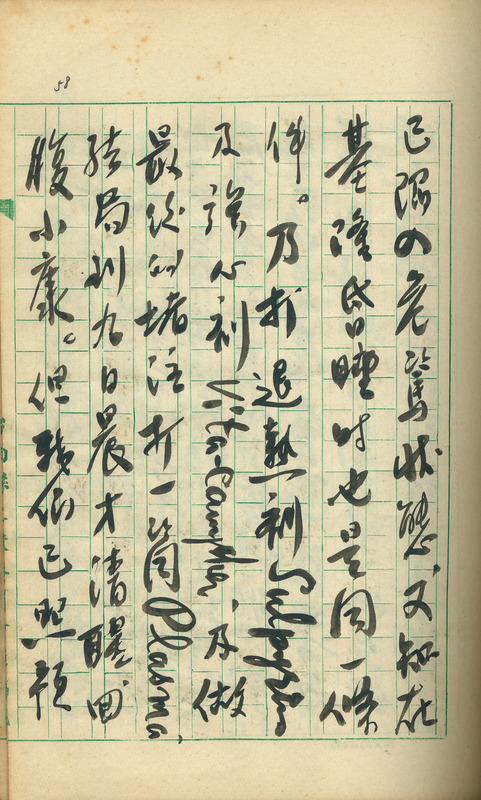 58
已陷入危篤状態、又知在
基隆昏睡时也是同一條
件。乃打退熱剤Sulpyrin
及強心剤Vita-Campher、及做
最後的堵注打一筒Plasma,
結局到九日晨才清醒回
復小康。但我倆已照預